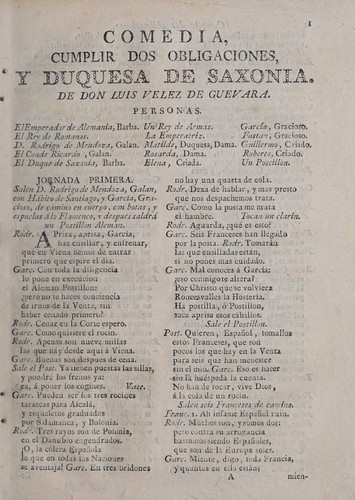 1
COMEDIA,
CUMPLIR DOS OBLIGACIONES,
Y DUQUESA DE SAXONIA.
DE DON LUIS VELEZ DE GUEVARA.
PERSONAS.
El Emperador de Alemania, Barba.
El Rey de Romanos.
D. Rodrigo de Mendoza, Galan.
El Conde Ricardo, Galan.
El Duque de Saxonia, Barba.
Un Rey de Armas.
La Emperatriz.
Matilde, Duquesa, Dama.
Rosarda, Dama.
Elena, Criada.
Garcia, Gracioso.
Tostan, Gracioso.
Guillermo, Criado.
Roberto, Criado.
Un Postillon.
JORNADA PRIMERA.
Salen D. Rodrigo de Mendoza, Galan,
con Habito de Santiago, y Garcia, Gracioso,
de camino en cuerpo, con botas, y
espuelas á lo Flamenco, y despues saldrá
un Postillon Aleman.
Rodr. A Prisa, aprisa, Garcia,
haz ensillar, y enfrenar,
que en Viena hemos de entrar
primero que espire el dia.
Garc. Con toda la diligencia
lo pone en execucion
el Aleman Postillon:
pero no te haces conciencia
de irnos de la Venta, sin
haber cenado primero?
Rodr. Cenar en la Corte espero.
Garc. Como quisiere el rocin.
Rodr. Apenas son nueve millas
las que hay desde aqui á Viena.
Garc. Buenas son despues de cena.
Sale el Post. Ya tienen puestas las sillas,
y pondré los frenos ya:
ea, á poner los coginetes. Vase.
Garc. Pueden ser los tres rocines
caratacas para Alcalá,
y esqueletos graduados
por Salamanca, y Bolonia.
Rodr. Tres rayos son de Polonia,
en el Danubio engendrados.
¡O, la cólera Española
lo que en todas las Naciones
se aventaja! Garc. En tres bridones
no hay una quarta de cola.
Rodr. Dexa de hablar, y mas presto
que nos despachemos trata.
Garc. Como la posta me mata
el hambre. Tocan un clarin.
Rodr. Aguarda, ¿qué es esto?
Garc. Seis Franceses han llegado
por la posta. Rodr. Tomarán
las que ensilladas están,
si no pones mas cuidado.
Garc. Mal conoces á Garcia:
¿eso conmigo te altera?
Por Christo que se volviera
Roncesvalles la Hosteria.
Ha postilla, ó Postillon,
saca apriesa esos caballos.
Sale el Postillon.
Post. Quieren, Español, tomallos
esto: Franceses, que son
pocos los que hay en la Venta
para seis que han menester
sin el mio. Garc. Eso es hacer
sin la huéspeda la cuenta.
No han de tocar, vive Dios,
á la cola de un rocin.
Salen seis Franceses de camino.
Franc. 1. Ah infame Español ruin.
Rodr. Muchos son, y somos dos:
pero contra su arrogancia
bastamos siendo Españoles,
que son de la Europa soles.
Garc. Miente, digo, toda Francia,
y quantos en ella están;
A
mien-